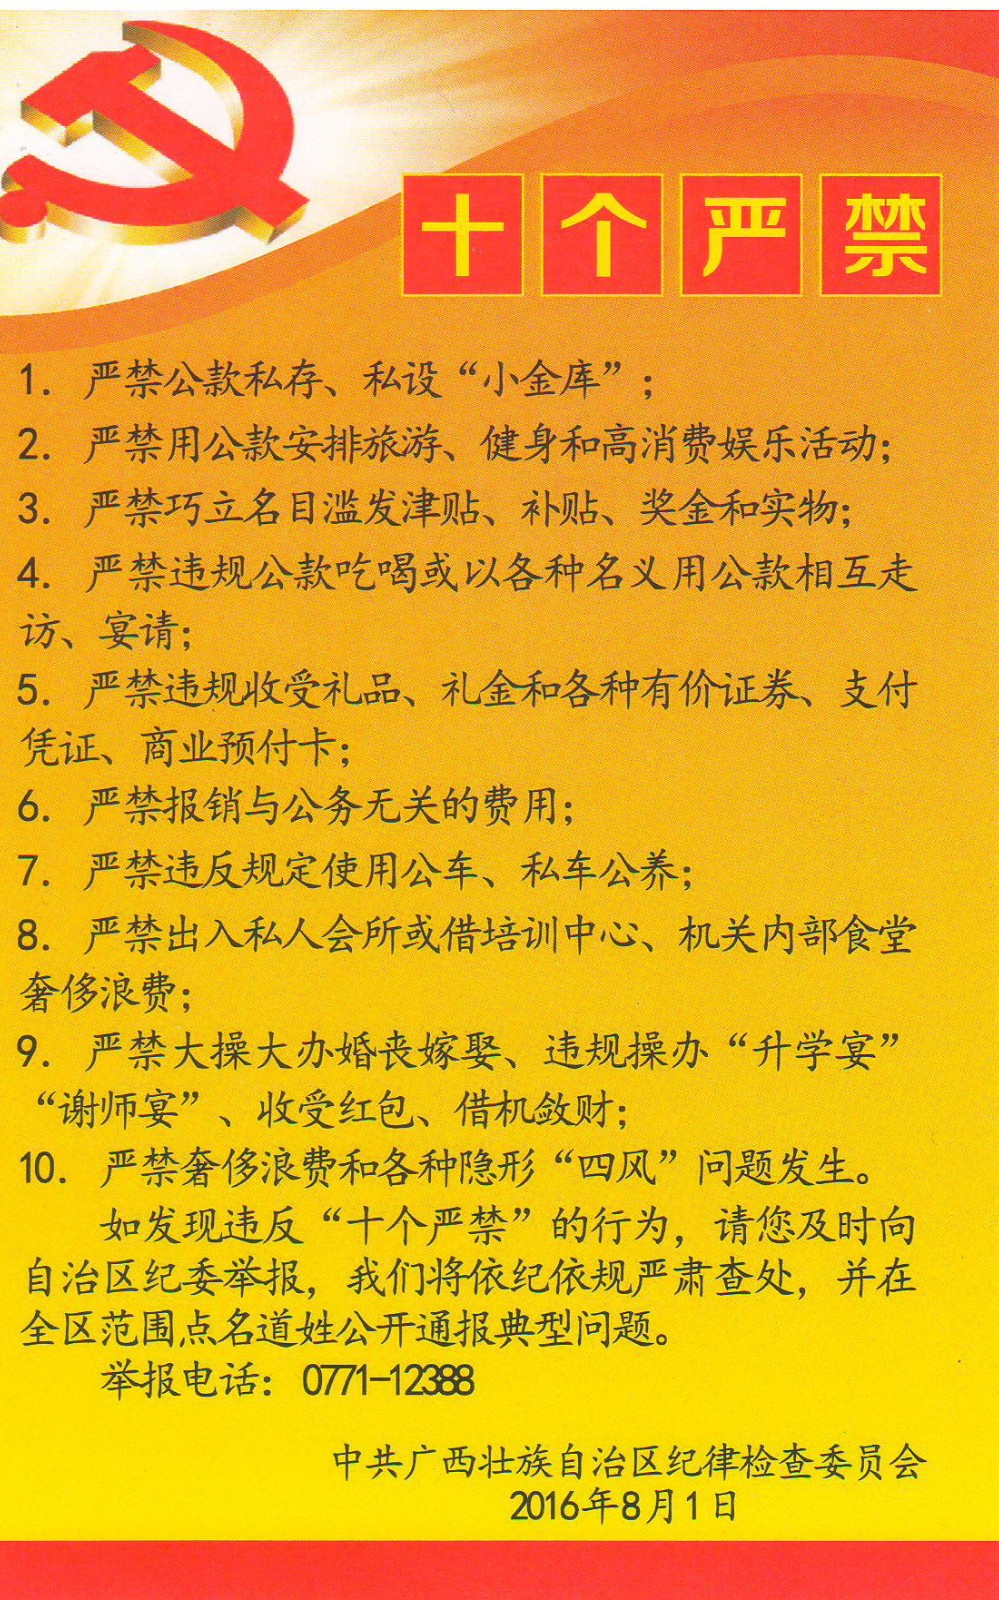 十个严禁
1. 严禁公款私存、私设“小金库”;
2. 严禁用公款安排旅游、健身和高消费娱乐活动;
3. 严禁巧立名目滥发津贴、补贴、奖金和实物;
4. 严禁违规公款吃喝或以各种名义用公款相互走
访、宴请;
5. 严禁违规收受礼品、礼金和各种有价证券、支付
凭证、商业预付卡;
6. 严禁报销与公务无关的费用;
7. 严禁违反规定使用公车、私车公养;
8. 严禁出入私人会所或借培训中心、机关内部食堂
奢侈浪费;
9. 严禁大操大办婚丧嫁娶、违规操办“升学宴”
“谢师宴”、收受红包、借机敛财;
10. 严禁奢侈浪费和各种隐形“四风”问题发生。
如发现违反“十个严禁”的行为，请您及时向
自治区纪委举报，我们将依纪依规严肃查处，并在
全区范围点名道姓公开通报典型问题。
举报电话：0771-12388
中共广西壮族自治区纪律检查委员会
2016年8月1日